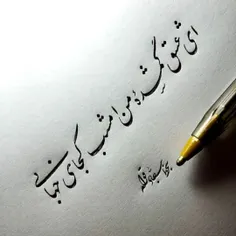 ای عشق گمشدهٔ من امشب کجای جهانی